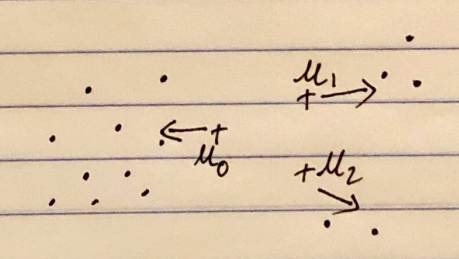 μ₁
+
+
μ₀
+ μ₂